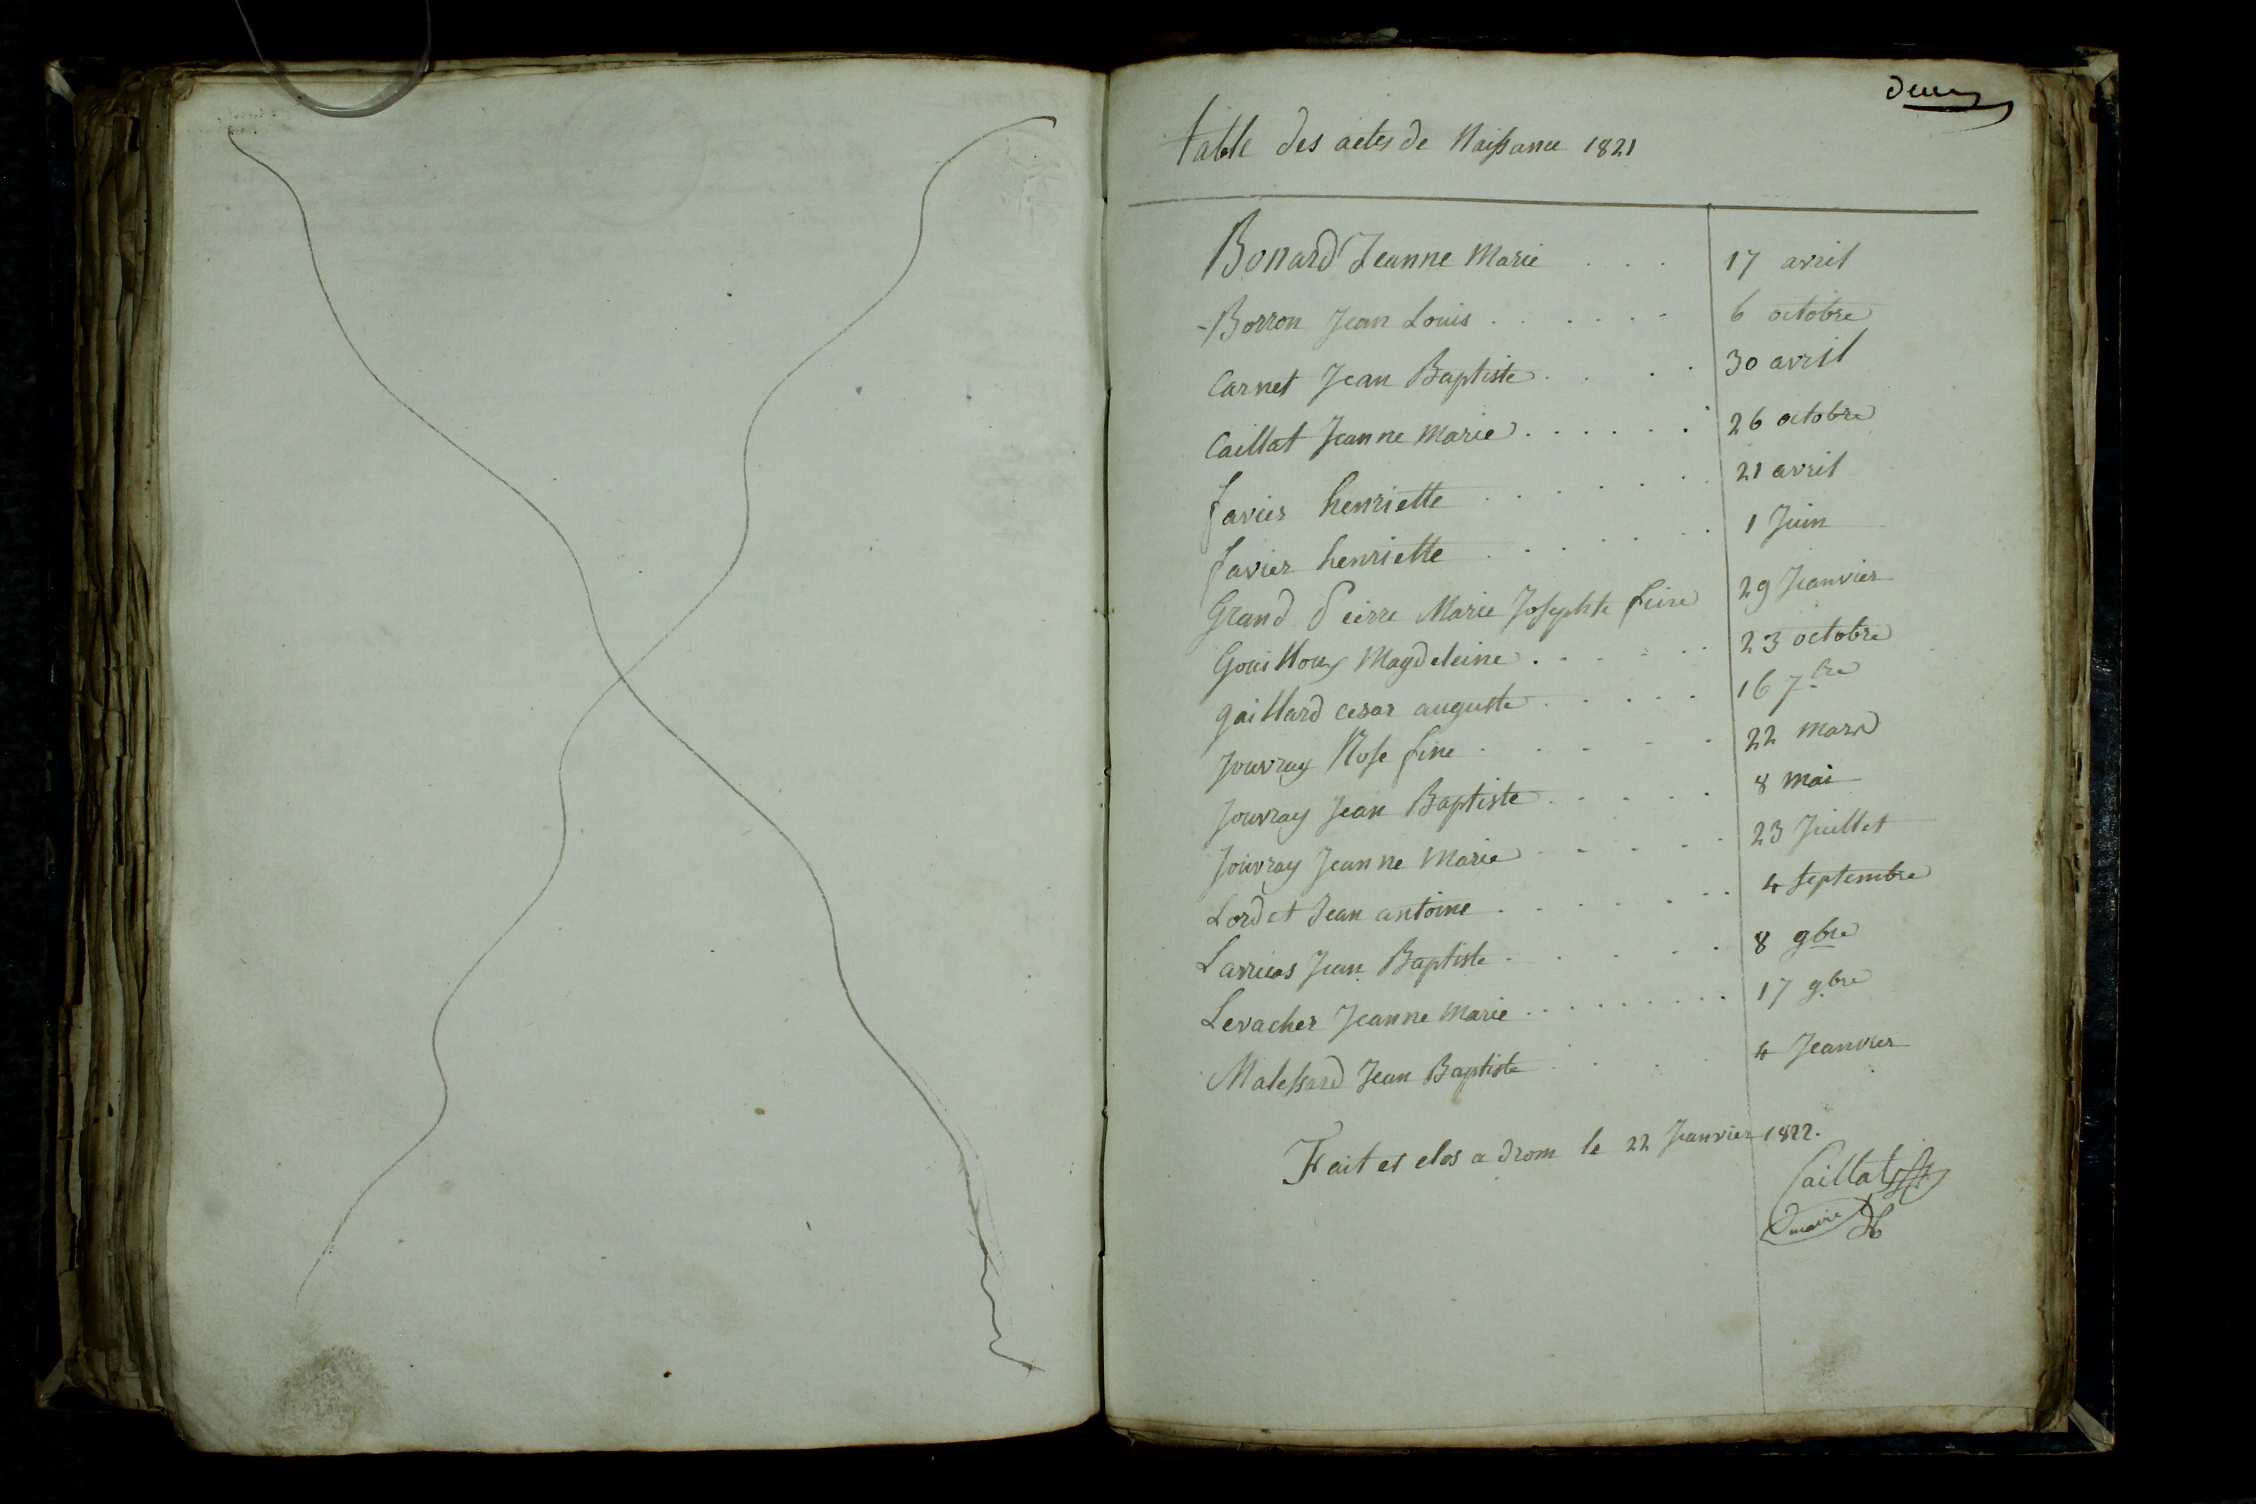 deux
table des actes de Naissance 1821
Bonard Jeanne Marie . . . 17 avril
Borron Jean Louis . . . . . . 6 octobre
Carnet Jean Baptiste . . . . 30 avril
Caillat Jeanne Marie . . . . . . 26 octobre
favier henriette . . . . . . . 21 avril
favier henriette . . . . . . . 1 Juin
Grand Pierre Marie Josephte fine 29 Jeanvier
Gouilloux Magdeleine . . . . . . 23 octobre
gaillard cesar auguste . . . . . 16 7.bre
Jouvray Rose fine . . . . . 22 mars
Jouvray Jean Baptiste . . . . . 8 mai
Jouvray Jeanne Marie . . . . . 23 Juillet
Lordet Jean antoine . . . . . . 4 septembre
Jean Baptiste . . . . . . 8 9bre
Levacher Jeanne Marie . . . . . . . . 17 9.bre
Malessard Jean Baptiste . . . . 4 Jeanvier
Fait et clos a drom le 22 Jeanvier 1822.
Caillat
maire